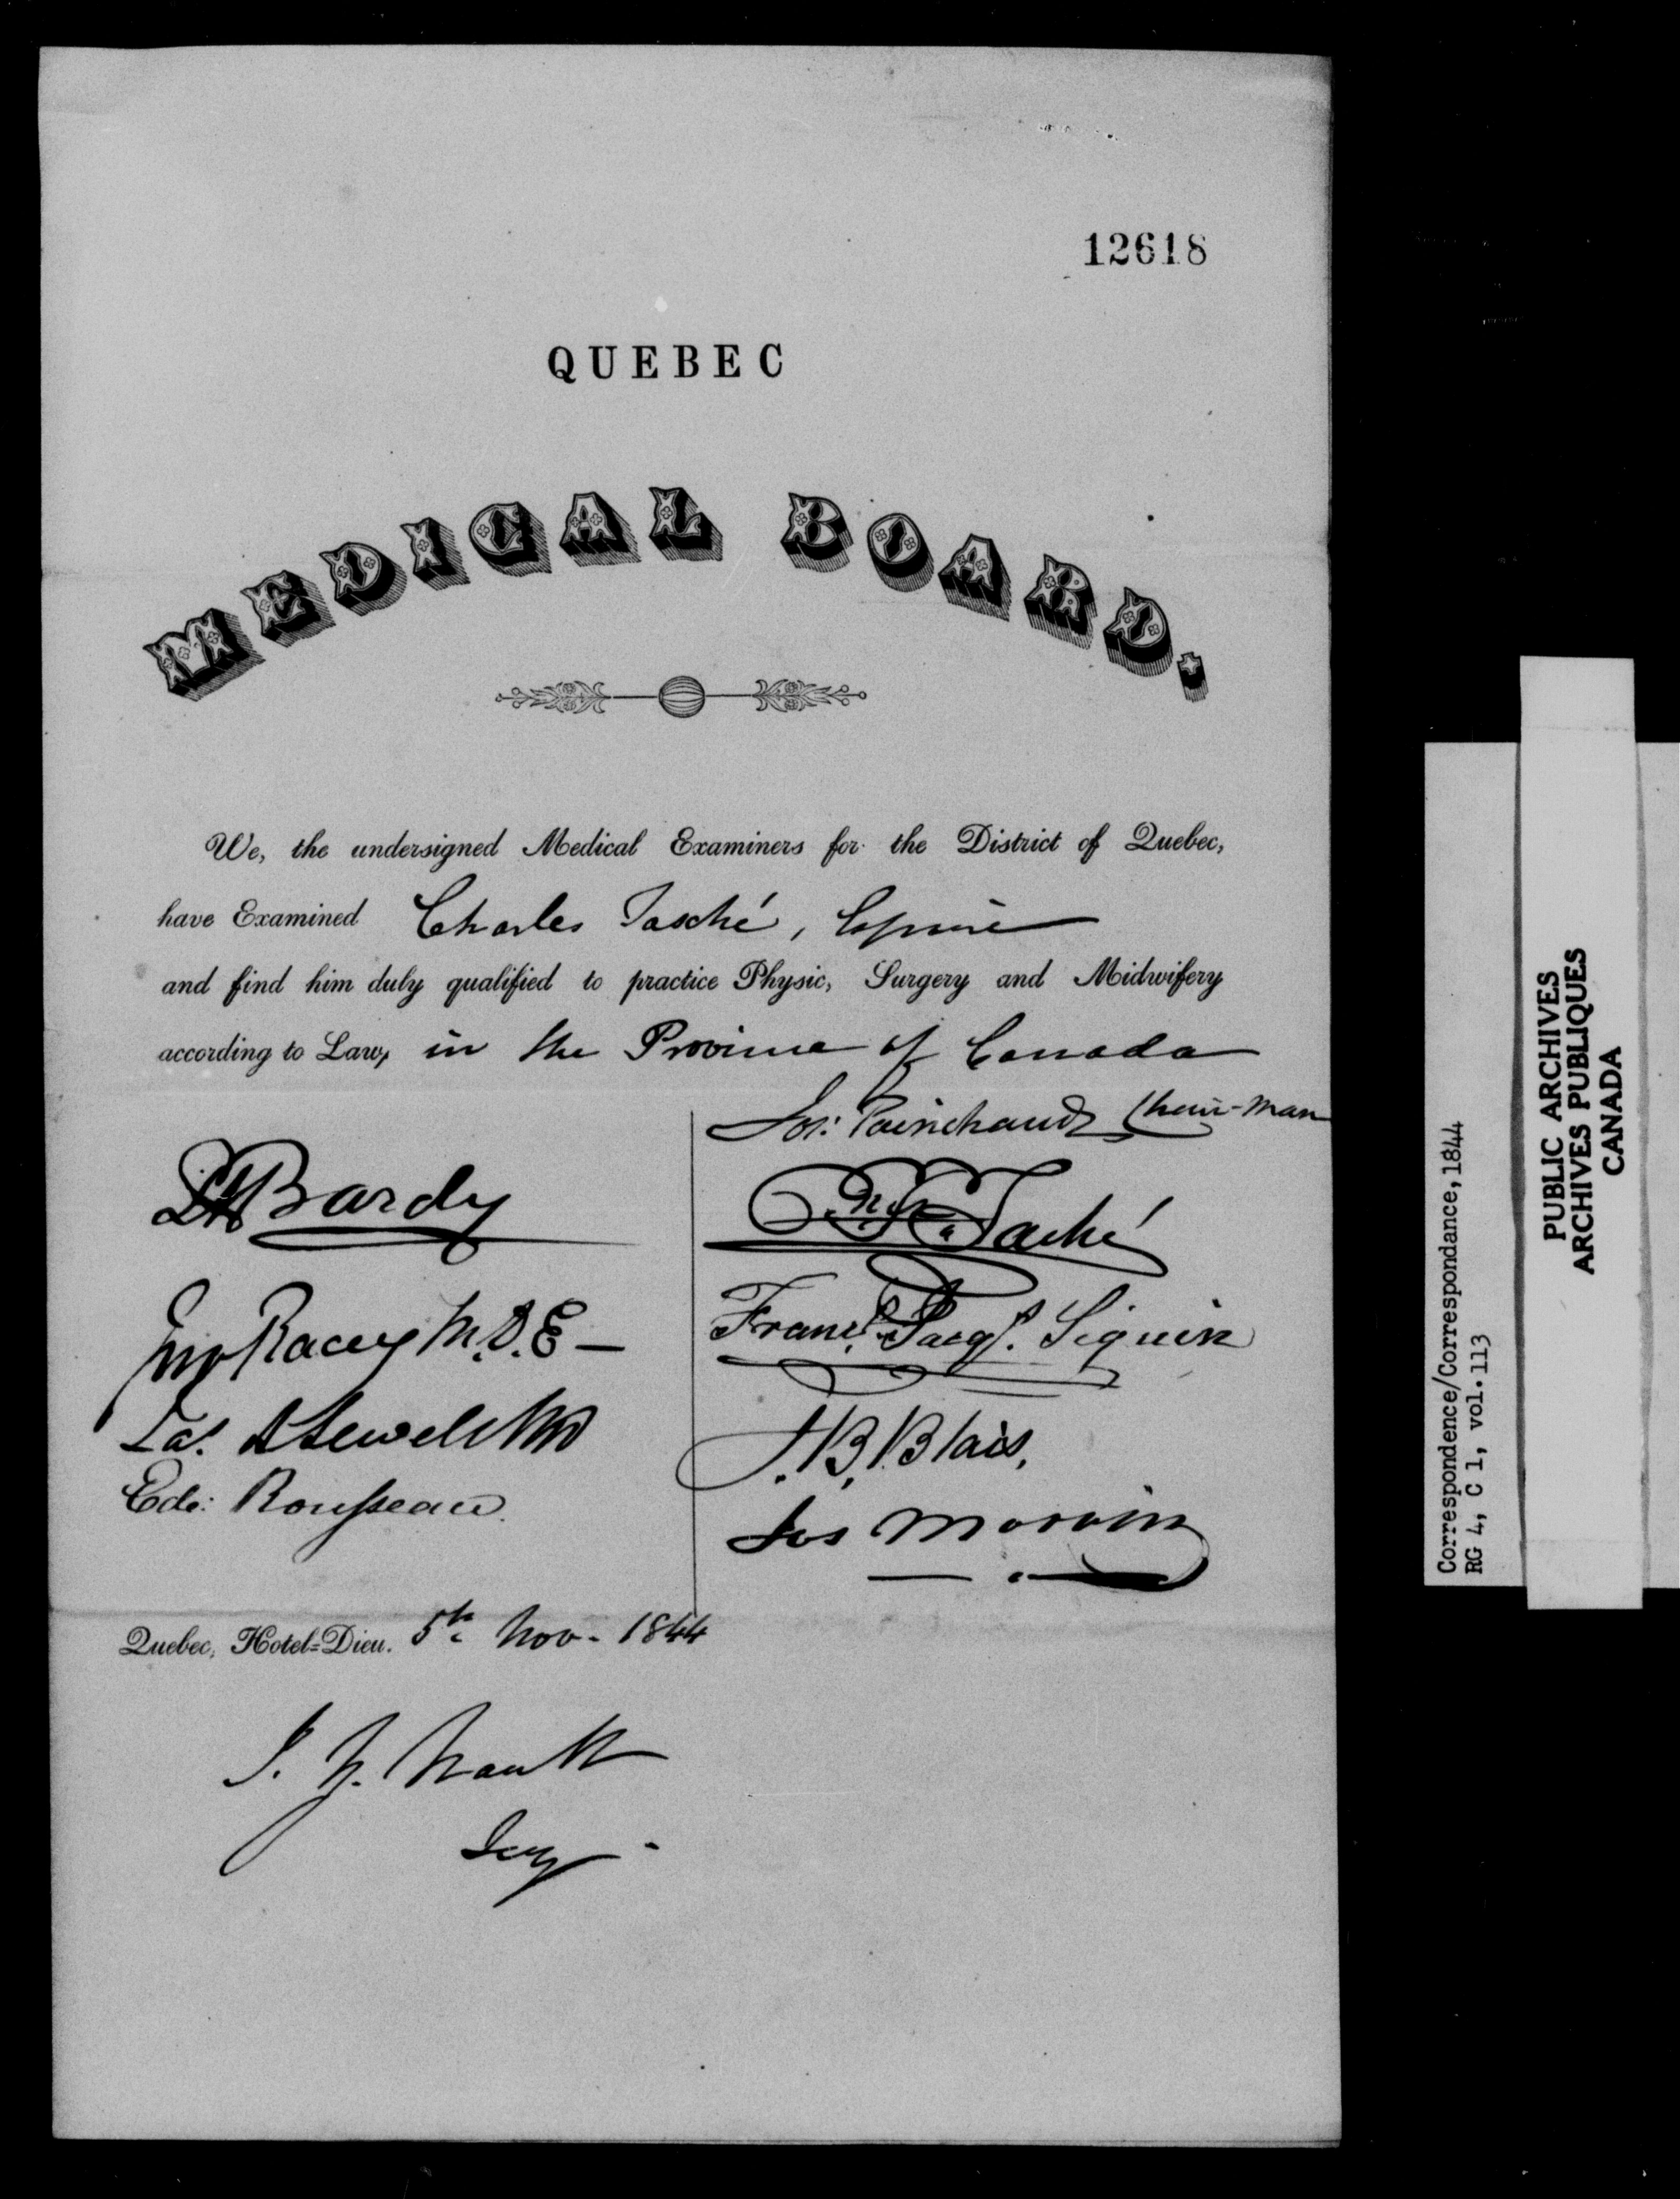 12618
QUEBEC
MEDICAL BOARD.
We, the undersigned Medical Examiners for the District of Quebec,
have Examined Charles Tasché, Esquire
and find him duly qualified to practice Physic, Surgery and Midwifery
according to Law, in the Province of Canada
Jos: Painchaud Chair-man
Bardy
Taché
Jno Racey M.D.E—
Frans. Jacqs. Seguin
Jas. A Sewell MD
J. B. Blais.
Edo: Rousseau.
Jos Morrin
Quebec, Hotel-Dieu. 5th Nov. 1844
J. Z. Nault
Secy.
Correspondence/Correspondance, 1844
RG 4, C 1, vol. 113
PUBLIC ARCHIVES
ARCHIVES PUBLIQUES
CANADA